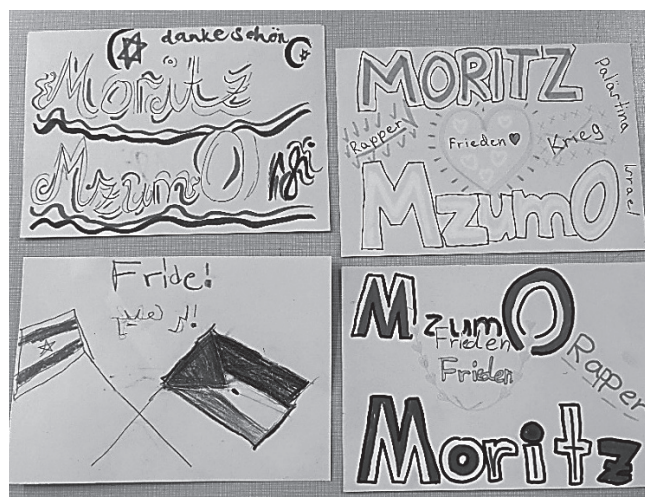 dankeschön
Moritz
MzumO
MORITZ
Palästina
Rapper
Frieden
Krieg
MzumO
Israel
Fride!
MzumO
Frieden
Frieden
Rapper
Moritz